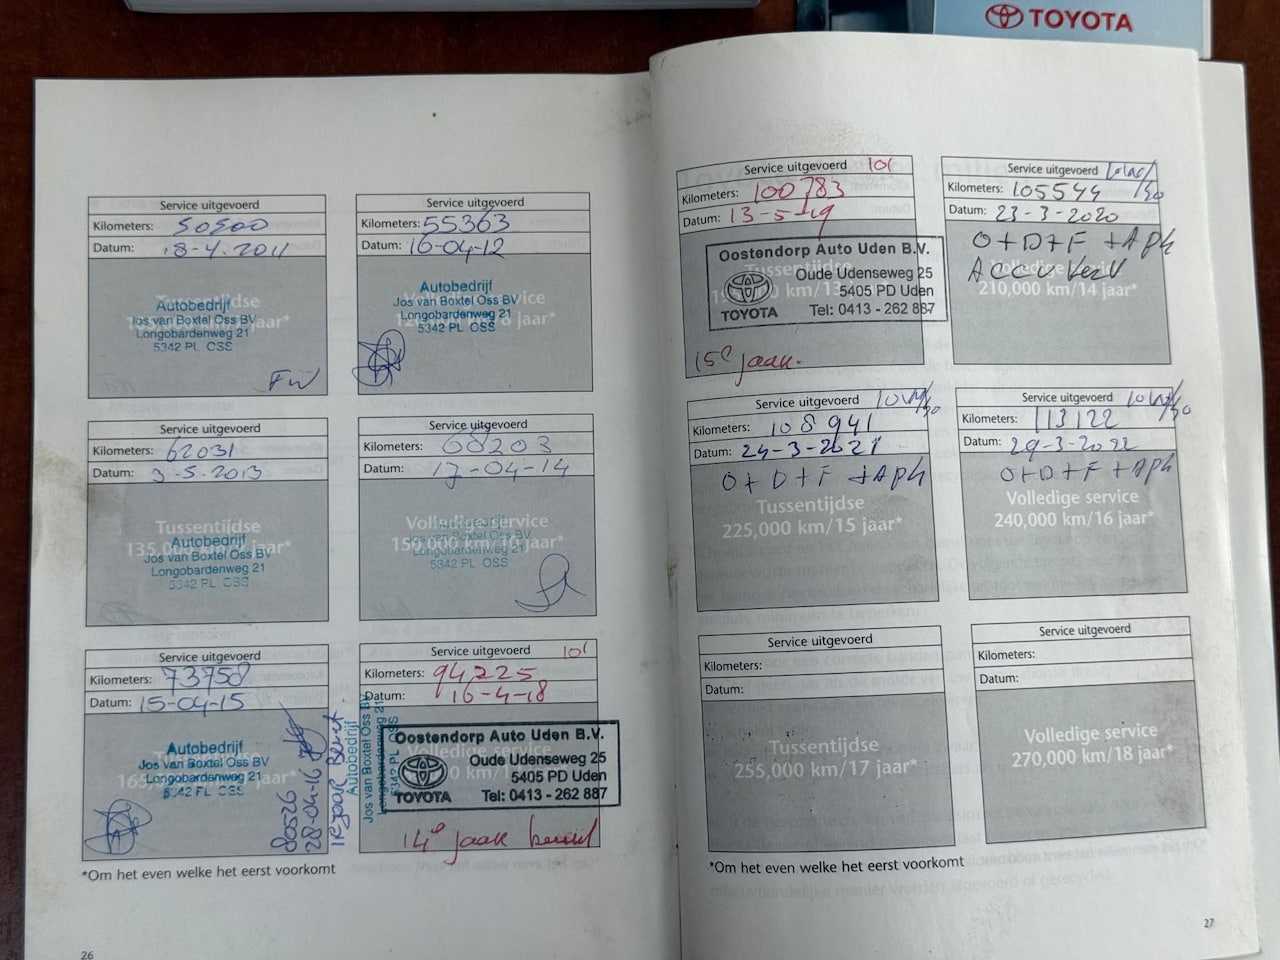 TOYOTA
Service uitgevoerd
Kilometers: 50500
Datum: 18-4-2011
Autobedrijf
Jos van Boxtel Oss BV
Longobardenweg 21
5342 PL OSS
Service uitgevoerd
Kilometers: 55363
Datum: 16-04-12
Autobedrijf
Jos van Boxtel Oss BV
Longobardenweg 21
5342 PL OSS
Service uitgevoerd
Kilometers: 62031
Datum: 3-5-2013
Tussentijdse
Autobedrijf
Jos van Boxtel Oss BV
Longobardenweg 21
5342 PL OSS
Service uitgevoerd
Kilometers: 68203
Datum: 17-04-14
Volledige service
Jos van Boxtel Oss BV
Longobardenweg 21
5342 PL OSS
Service uitgevoerd
Kilometers: 73758
Datum: 15-04-15
Autobedrijf
Jos van Boxtel Oss BV
Longobardenweg 21
5342 PL OSS
80526
28-04-16
Autobedrijf
Jos van Boxtel Oss BV
Longobardenweg 21
5342 PL OSS
Service uitgevoerd
Kilometers: 94225
Datum: 16-4-18
Oostendorp Auto Uden B.V.
Oude Udenseweg 25
5405 PD Uden
TOYOTA Tel: 0413 - 262 887
14e jaar beurt
*Om het even welke het eerst voorkomt
26
Service uitgevoerd
Kilometers: 100783
Datum: 13-5-19
Oostendorp Auto Uden B.V.
Oude Udenseweg 25
5405 PD Uden
TOYOTA Tel: 0413 - 262 887
15e jaar.
Service uitgevoerd
Kilometers: 105544
Datum: 23-3-2020
O+D+F +APk
Accu Verv
210,000 km/14 jaar*
Service uitgevoerd
Kilometers: 108941
Datum: 24-3-2021
O+D+F +APk
Tussentijdse
225,000 km/15 jaar*
Service uitgevoerd
Kilometers: 113122
Datum: 29-3-2022
O+D+F +APk
Volledige service
240,000 km/16 jaar*
Service uitgevoerd
Kilometers:
Datum:
Tussentijdse
255,000 km/17 jaar*
Service uitgevoerd
Kilometers:
Datum:
Volledige service
270,000 km/18 jaar*
*Om het even welke het eerst voorkomt
27